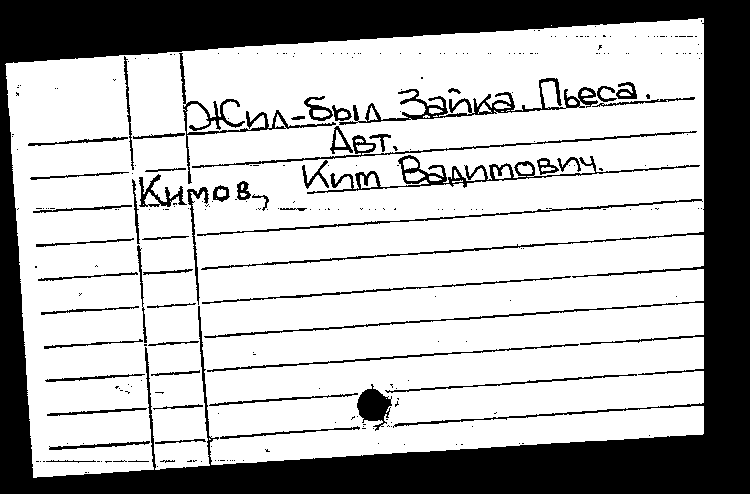 Жил-был Зайка. Пьеса.
Авт.
Кимов, Ким Вадимович.